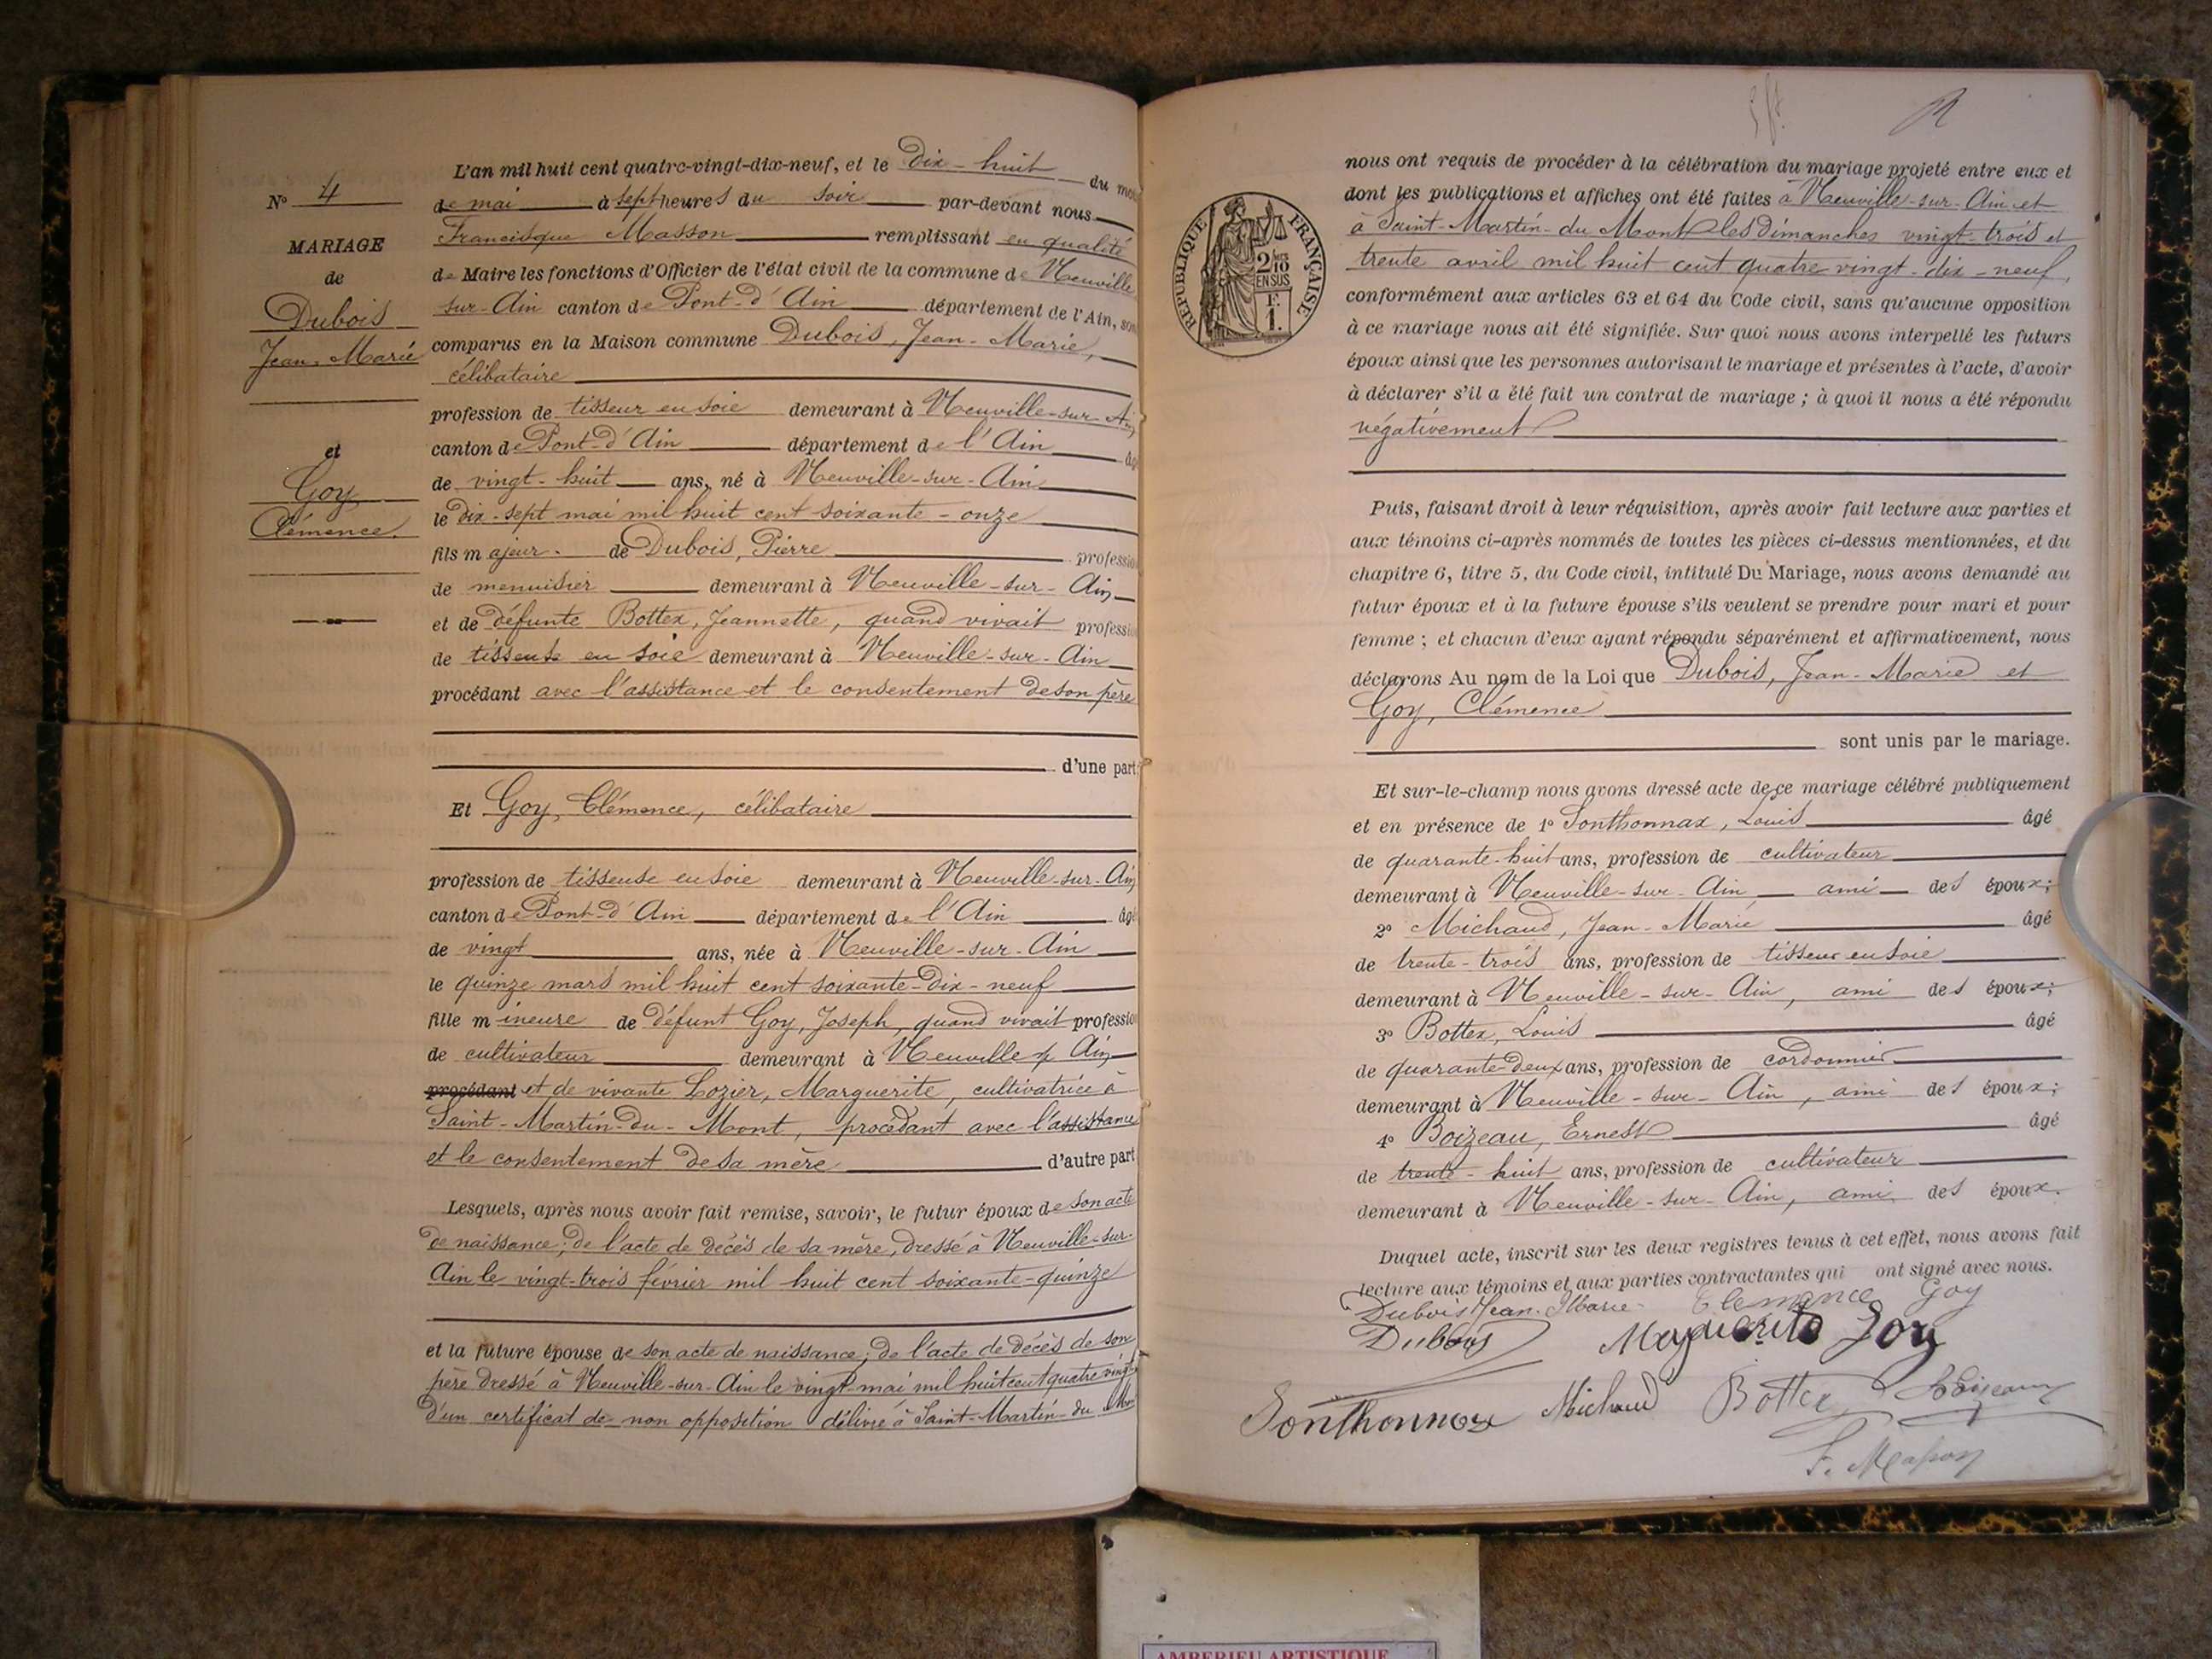 N° 4
MARIAGE
de
Dubois
Jean-Marie
et
Goy
Clémence.
L'an mil huit cent quatre-vingt-dix-neuf, et le dix-huit du mois
de mai à sept heures du soir par-devant nous
Francisque Masson remplissant en qualité
de Maire les fonctions d'Officier de l'état civil de la commune de Neuville
sur-Ain canton de Pont-d'Ain département de l'Ain, son
comparus en la Maison commune Dubois, Jean-Marie,
célibataire
profession de tisseur en soie demeurant à Neuville-sur-Ain
canton de Pont-d'Ain département de l'Ain âg
de vingt-huit ans, né à Neuville-sur-Ain
le dix-sept mai mil huit cent soixante-onze
fils majeur de Dubois, Pierre professio
de menuisier demeurant à Neuville-sur-Ain
et de défunte Bottex, Jeannette, quand vivait professi
de tisseuse en soie demeurant à Neuville-sur-Ain
procédant avec l'assistance et le consentement de son père
d'une part
Et Goy, Clémence, célibataire
profession de tisseuse en soie demeurant à Neuville-sur-Ain
canton de Pont-d'Ain département de l'Ain âgé
de vingt ans, née à Neuville-sur-Ain
le quinze mars mil huit cent soixante-dix-neuf
fille mineure de défunt Goy, Joseph, quand vivait professio
de cultivateur demeurant à Neuville s/ Ain
procédant et de vivante Lozier, Marguerite, cultivatrice à
Saint-Martin-du-Mont, procédant avec l'assistance
et le consentement de sa mère d'autre part
Lesquels, après nous avoir fait remise, savoir, le futur époux de son acte
de naissance; de l'acte de décès de sa mère, dressé à Neuville-sur-
Ain le vingt-trois février mil huit cent soixante-quinze
et la future épouse de son acte de naissance; de l'acte de décès de son
père dressé à Neuville-sur-Ain le vingt-mai mil huit cent quatre vingt
d'un certificat de non opposition délivré à Saint-Martin-du Mon
RÉPUBLIQUE FRANÇAISE
2/10 EN SUS
F. 1.
nous ont requis de procéder à la célébration du mariage projeté entre eux et
dont les publications et affiches ont été faites à Neuville-sur-Ain et
à Saint-Martin-du Mont les dimanches vingt-trois et
trente avril mil huit cent quatre vingt-dix-neuf,
conformément aux articles 63 et 64 du Code civil, sans qu'aucune opposition
à ce mariage nous ait été signifiée. Sur quoi nous avons interpellé les futurs
époux ainsi que les personnes autorisant le mariage et présentes à l'acte, d'avoir
à déclarer s'il a été fait un contrat de mariage ; à quoi il nous a été répondu
négativement
Puis, faisant droit à leur réquisition, après avoir fait lecture aux parties et
aux témoins ci-après nommés de toutes les pièces ci-dessus mentionnées, et du
chapitre 6, titre 5, du Code civil, intitulé Du Mariage, nous avons demandé au
futur époux et à la future épouse s'ils veulent se prendre pour mari et pour
femme ; et chacun d'eux ayant répondu séparément et affirmativement, nous
déclarons Au nom de la Loi que Dubois, Jean-Marie et
Goy, Clémence
sont unis par le mariage.
Et sur-le-champ nous avons dressé acte de ce mariage célébré publiquement
et en présence de 1° Sonthonnax, Louis âgé
de quarante-huit ans, profession de cultivateur
demeurant à Neuville-sur-Ain, ami des époux;
2° Michaud, Jean-Marie âgé
de trente-trois ans, profession de tisseur en soie
demeurant à Neuville-sur-Ain, ami des époux;
3° Bottex, Louis âgé
de quarante-deux ans, profession de cordonnier
demeurant à Neuville-sur-Ain, ami des époux;
4° Boizeau, Ernest âgé
de trente-huit ans, profession de cultivateur
demeurant à Neuville-sur-Ain, ami des époux.
Duquel acte, inscrit sur les deux registres tenus à cet effet, nous avons fait
lecture aux témoins et aux parties contractantes qui ont signé avec nous.
Dubois Jean-Marie Clemance Goy
Dubois Marguerite Goy
Sonthonnax Michaud Bottex Boizeau
F. Masson
AMBERIEU ARTISTIQUE